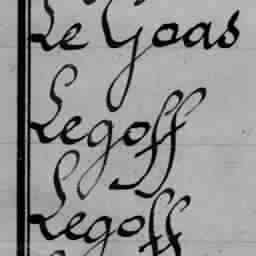 Le Goas
Legoff
Legoff